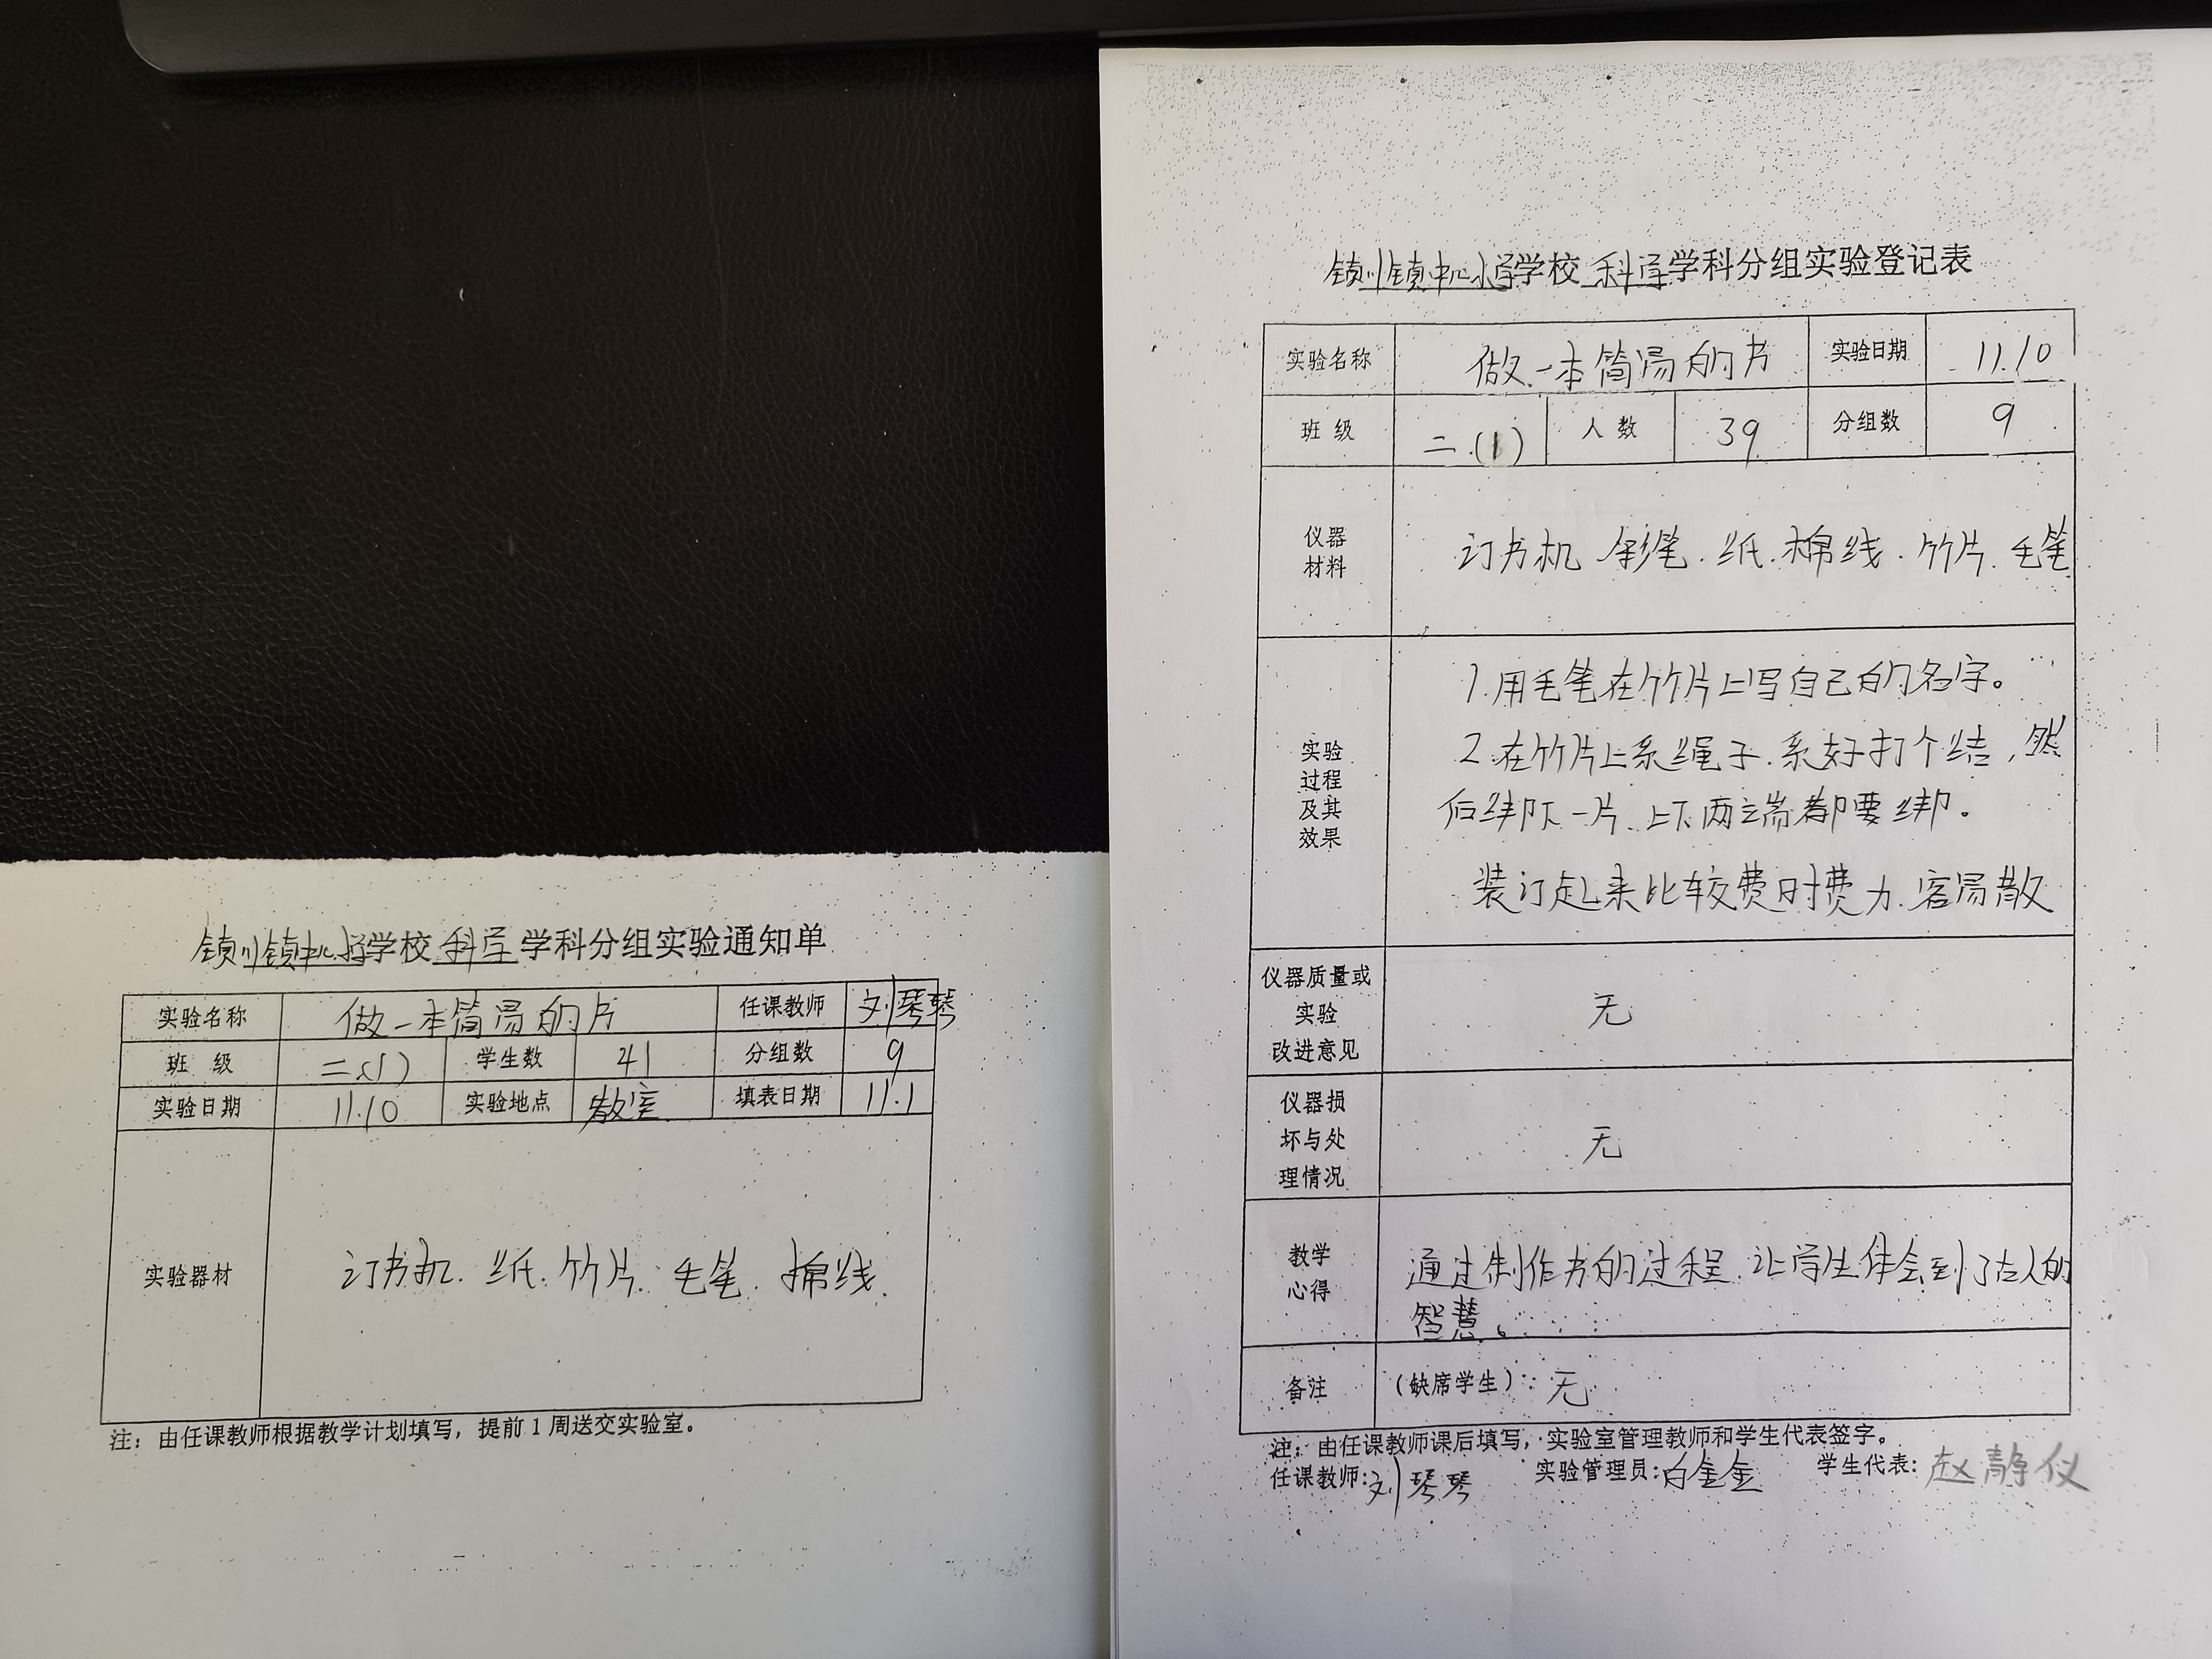 镇川镇中心小学学校科学学科分组实验通知单
实验名称 做一本简易的书 任课教师 刘琴琴
班 级 二(1) 学生数 41 分组数 9
实验日期 11.10 实验地点 教室 填表日期 11.1
实验器材 订书机.纸.竹片.毛笔.棉线.
注：由任课教师根据教学计划填写，提前1周送交实验室。
镇川镇中心小学学校科学学科分组实验登记表
实验名称 做一本简易的书 实验日期 11.10
班 级 二.(1) 人 数 39 分组数 9
仪器
材料
订书机 彩笔.纸.棉线.竹片.毛笔
实验
过程
及其
效果
1.用毛笔在竹片上写自己的名字。
2.在竹片上系绳子.系好打个结，然
后绑下一片.上下两端都要绑。
装订起来比较费时费力.容易散
仪器质量或
实验
改进意见
无
仪器损
坏与处
理情况
无
教学
心得
通过制作书的过程.让学生体会到了古人的
智慧。
备注 (缺席学生)：无
注：由任课教师课后填写，实验室管理教师和学生代表签字。
任课教师:刘琴琴 实验管理员:白金金 学生代表:赵静仪